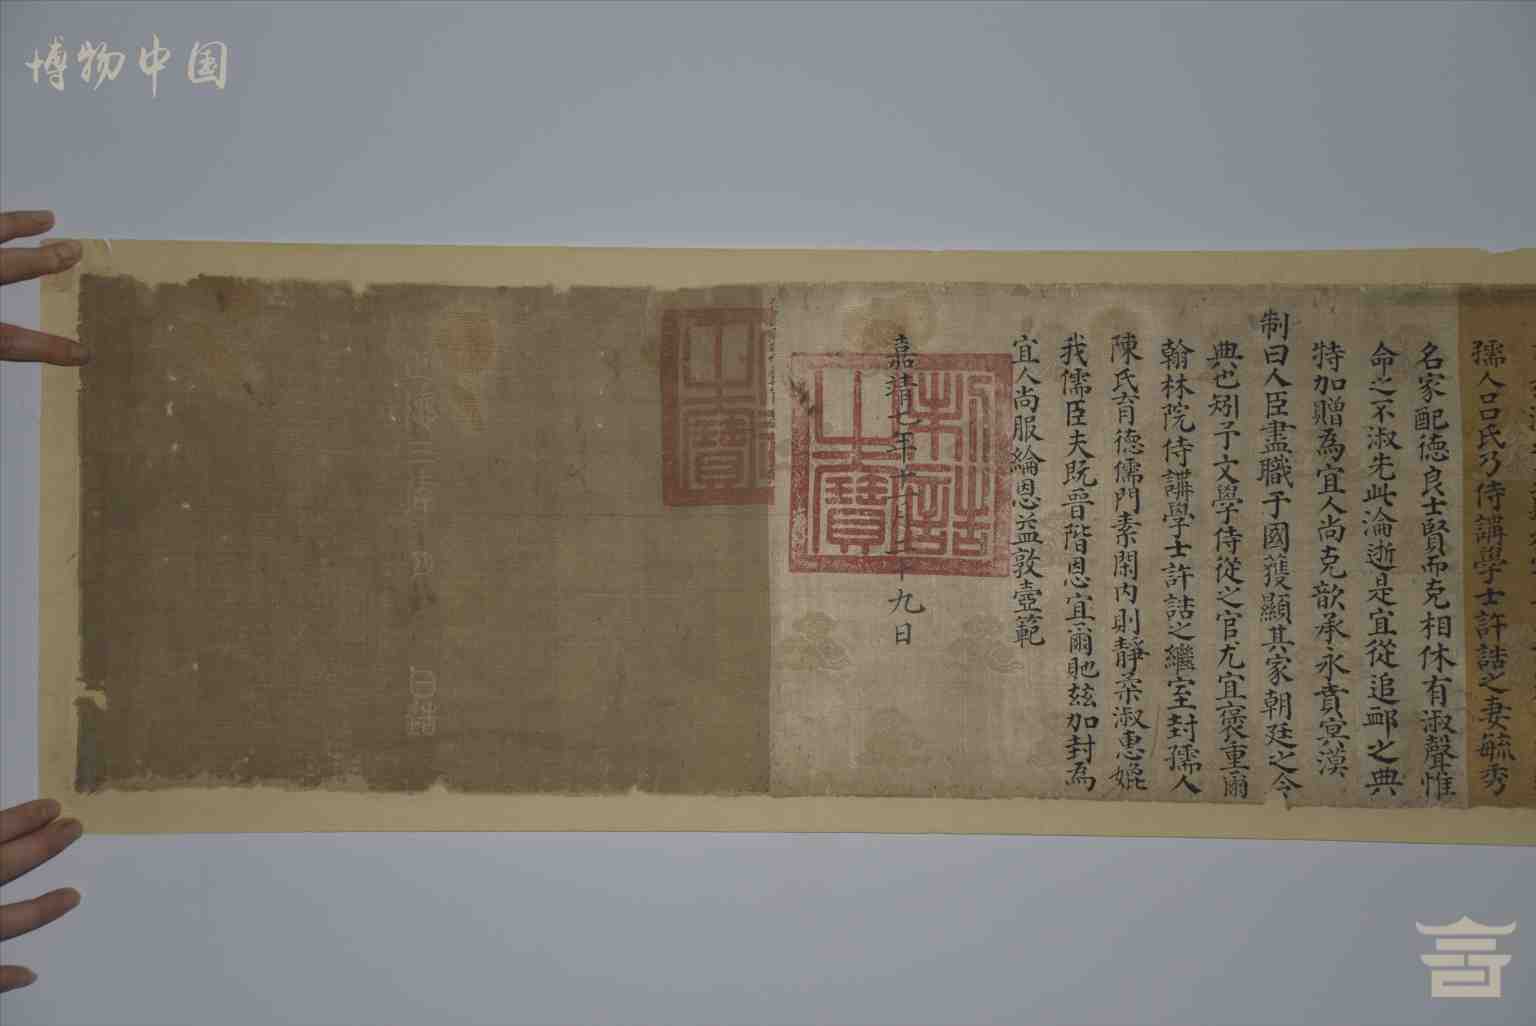 博物中国
孺人吕氏乃侍講學士許誥之妻毓秀
名家配德良士賢而克相休有淑聲惟
命之不淑先此淪逝是宜從追䘏之典
特加贈為宜人尚克歆承永賁冥漠
制曰人臣盡職于國獲顯其家朝廷之令
典也矧予文學侍從之官尤宜褒重爾
翰林院侍講學士許誥之繼室封孺人
陳氏育德儒門素閑內則靜柔淑惠媲
我儒臣夫既晉階恩宜爾貤兹加封為
宜人尚服綸恩益敦壼範
嘉靖七年十一月二十九日
制誥之寶
之寶
日誥